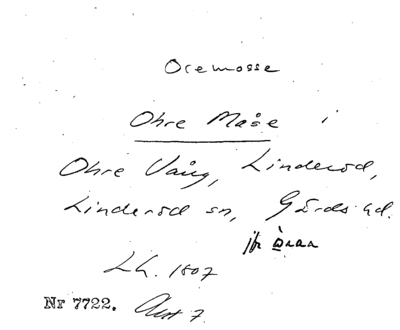 Oremosse
Ohre Måse i
Ohre Vång, Linderöd,
Linderöd sn, Gärds hd.
jfr
Lh. 1807
Nr 7722. Akt 7